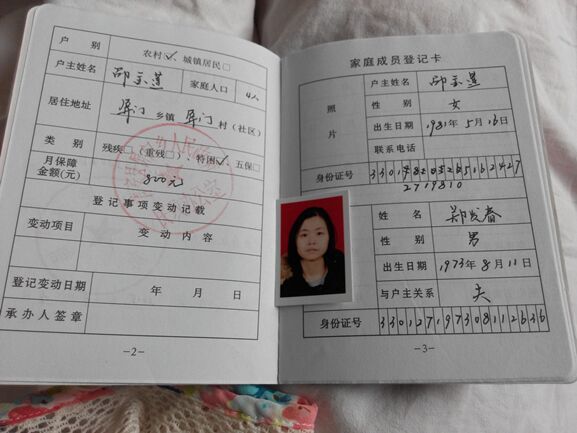 户 别 农村☑、城镇居民□
户主姓名 邵 莲 家庭人口 4人
居住地址 屏门 乡镇 屏门 村（社区）
类 别 残疾□（重残□）、特困☑、五保□
月保障金额(元) 800元
登记事项变动记载
变动项目 变 动 内 容
登记变动日期 年 月 日
承办人签章
－2－
家庭成员登记卡
照 片
户主姓名 邵 莲
性 别 女
出生日期 1981年5月16日
联系电话
身份证号
姓 名 郑 春
性 别 男
出生日期 1973年8月11日
与户主关系 夫
身份证号 330127197308112636
－3－